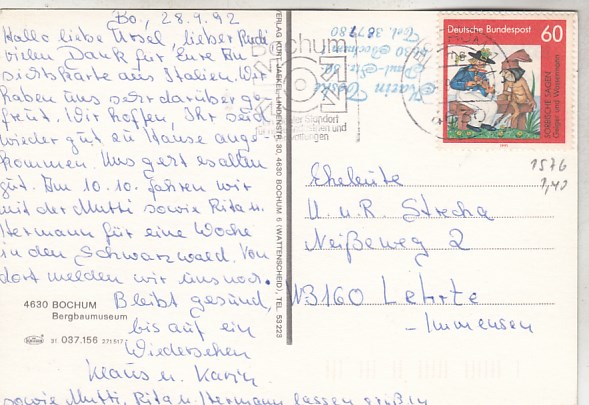 Bo, 28.9.92
Hallo liebe Ursel, lieber Rudi
vielen Dank für Eure An
sichtskarte aus Italien. Wir
haben uns sehr darüber ge
freut. Wir hoffen, Ihr seid
wieder gut zu Hause ange-
kommen. Uns geht es allen
gut. Am 10.10. fahren wir
mit der Mutti sowie Rita u.
Hermann für eine Woche
in den Schwarzwald. Von
dort melden wir uns noch.
Bleibt gesund,
bis auf ein
Wiedersehen
Klaus u. Karin
sowie Mutti, Rita u. Hermann lassen grüßen
4630 BOCHUM
Bergbaumuseum
21 037.156 271517
4630 BOCHUM 6 (WATTENSCHEID), TEL. 53223
Bochum
Standort
Karin
4630 Bochum
Tel. 387980
Deutsche Bundespost 60
SORBISCHE SAGEN
Geiger und Wassermann
1992
1576
1,40
Eheleute
U. u. R. Strecha
Neißeweg 2
W3160 Lehrte
-Immensen